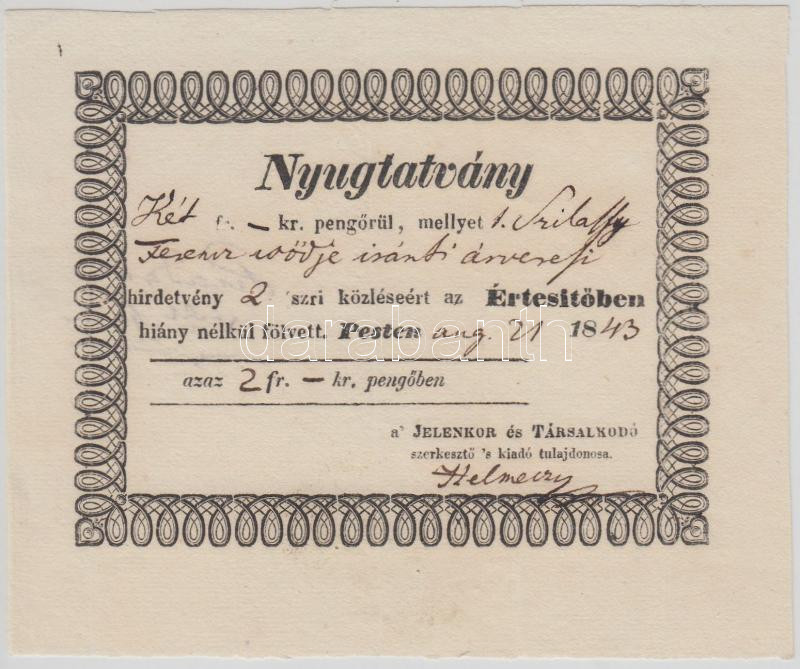 Nyugtatvány
Két fr. – kr. pengőrül, mellyet t. Szilassy
Ferencz iránti árverési
hirdetvény 2 szri közléseért az Értesitőben
hiány nélkül fölvett. Pesten aug. 21 1843
darabanth
azaz 2 fr. – kr. pengőben
a' JELENKOR és TÁRSALKODÓ
szerkesztő 's kiadó tulajdonosa.
Helmeczy